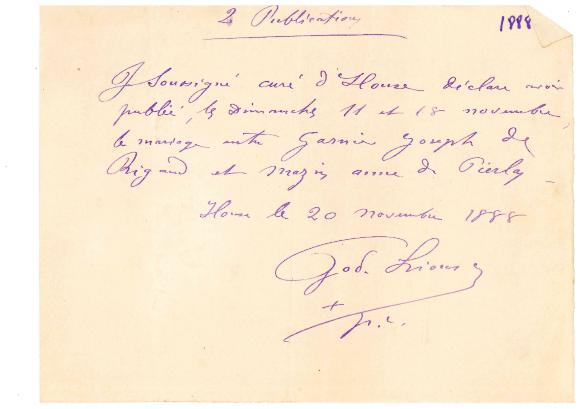 2 Publications
1888
J Soussigné curé d'House déclare avoir
publié, les dimanches 11 et 18 novembre,
le mariage entre Garnier Joseph de
Rigaud et Mazin anne de Pierlas
House le 20 novembre 1888
God.
p.c.